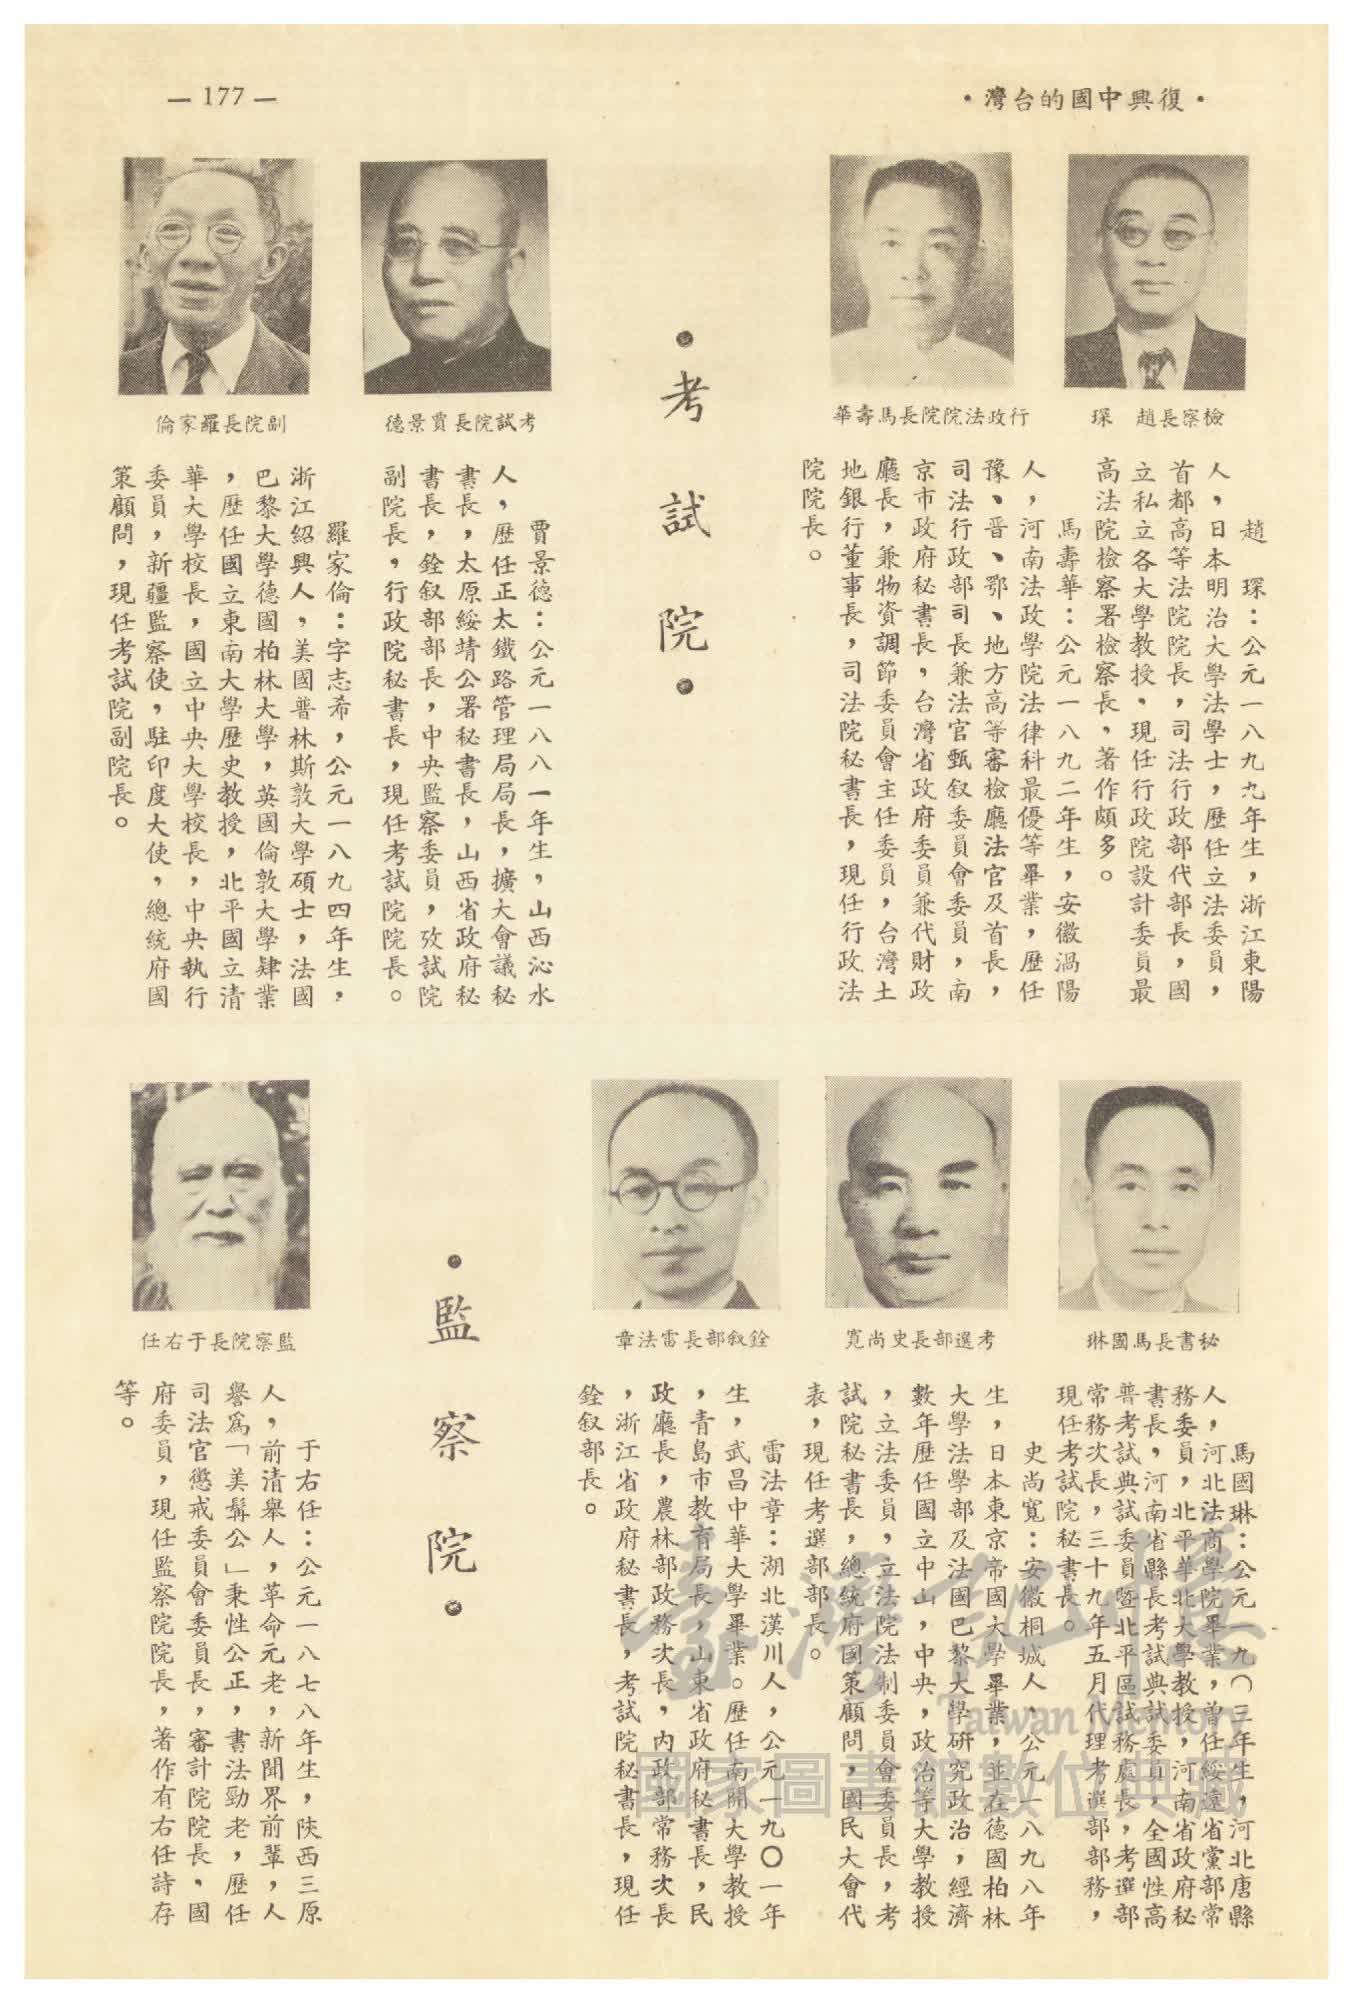 — 177 —
•復興中國的台灣•
檢察長趙　琛
趙　琛：公元一八九九年生，浙江東陽
人，日本明治大學法學士，歷任立法委員，
首都高等法院院長，司法行政部代部長，國
立私立各大學教授，現任行政院設計委員最
高法院檢察署檢察長，著作頗多。
行政法院院長馬壽華
馬壽華：公元一八九二年生，安徽渦陽
人，河南法政學院法律科最優等畢業，歷任
豫、晉、鄂、地方高等審檢廳法官及首長，
司法行政部司長兼法官甄叙委員會委員，南
京市政府秘書長，台灣省政府委員兼代財政
廳長，兼物資調節委員會主任委員，台灣土
地銀行董事長，司法院秘書長，現任行政法
院院長。
•考試院•
考試院長賈景德
賈景德：公元一八八一年生，山西沁水
人，歷任正太鐵路管理局局長，擴大會議秘
書長，太原綏靖公署秘書長，山西省政府秘
書長，銓叙部部長，中央監察委員，攷試院
副院長，行政院秘書長，現任考試院院長。
副院長羅家倫
羅家倫：字志希，公元一八九四年生，
浙江紹興人，美國普林斯敦大學碩士，法國
巴黎大學德國柏林大學，英國倫敦大學肄業
，歷任國立東南大學歷史教授，北平國立清
華大學校長，國立中央大學校長，中央執行
委員，新疆監察使，駐印度大使，總統府國
策顧問，現任考試院副院長。
秘書長馬國琳
馬國琳：公元一九〇三年生，河北唐縣
人，河北法商學院畢業，曾任綏遠省黨部常
務委員，北平華北大學教授，河南省政府秘
書長，河南省縣長考試典試委員，全國性高
普考試典試委員暨北平區試務處長，考選部
常務次長，三十九年五月代理考選部部務，
現任考試院秘書長。
考選部長史尚寬
史尚寬：安徽桐城人，公元一八九八年
生，日本東京帝國大學畢業，並在德國柏林
大學法學部及法國巴黎大學研究政治，經濟
數年歷任國立中山，中央，政治等大學教授
，立法委員，立法院法制委員會委員長，考
試院秘書長，總統府國策顧問，國民大會代
表，現任考選部部長。
銓叙部長雷法章
雷法章：湖北漢川人，公元一九〇一年
生，武昌中華大學畢業。歷任南開大學教授
，青島市教育局長，山東省政府秘書長，民
政廳長，農林部政務次長，內政部常務次長
，浙江省政府秘書長，考試院秘書長，現任
銓叙部長。
•監察院•
監察院長于右任
于右任：公元一八七八年生，陝西三原
人，前清舉人，革命元老，新聞界前輩，人
譽爲「美髯公」秉性公正，書法勁老，歷任
司法官懲戒委員會委員長，審計院院長，國
府委員，現任監察院院長，著作有右任詩存
等。
臺灣記憶
Taiwan Memory
國家圖書館數位典藏